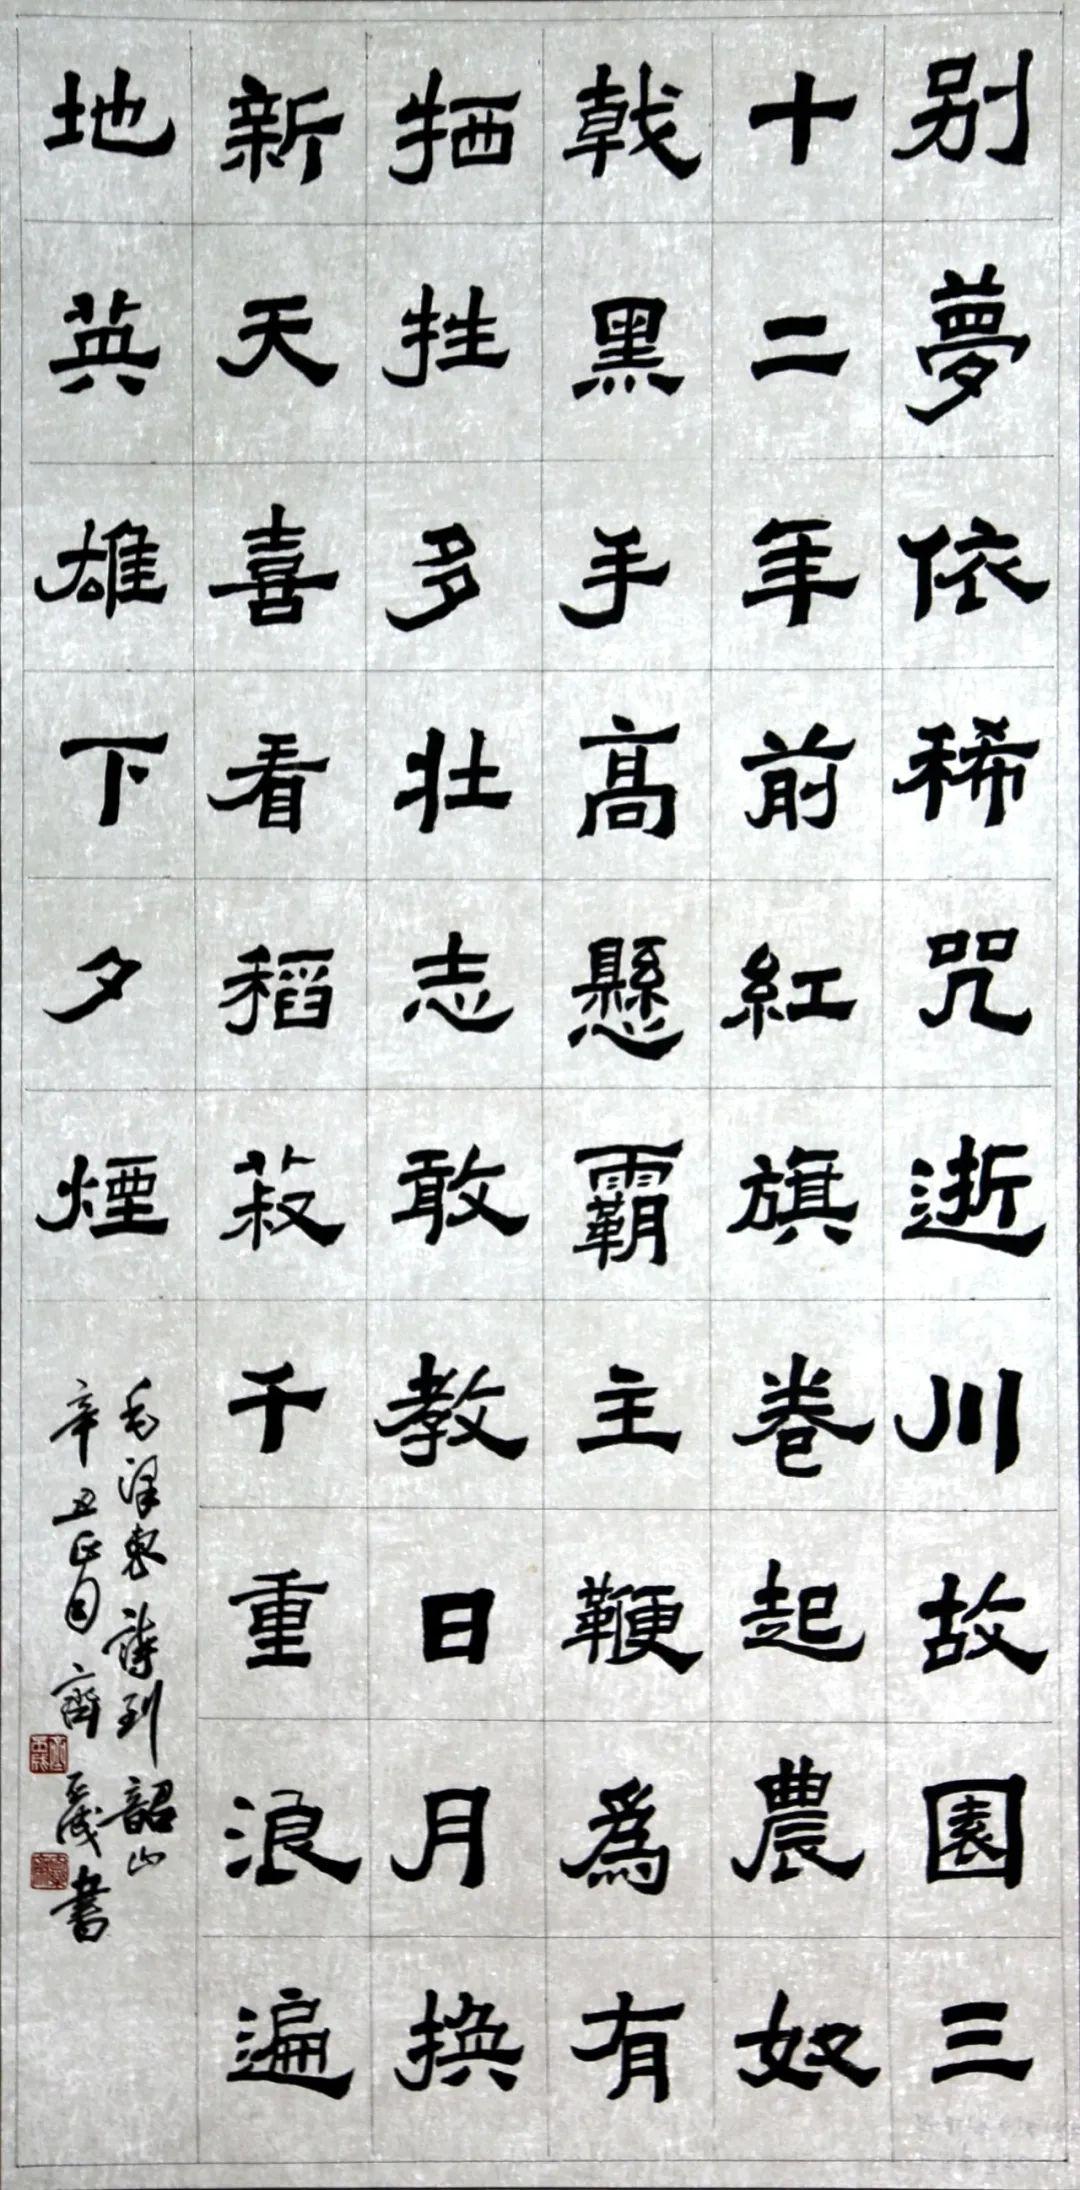 别夢依稀咒逝川故園三
十二年前紅旗卷起農奴
戟黑手髙懸霸主鞭爲有
牺牲多壮志敢教日月换
新天喜看稻菽千重浪遍
地英雄下夕煙
毛澤東詩到韶山
辛丑正月齊書